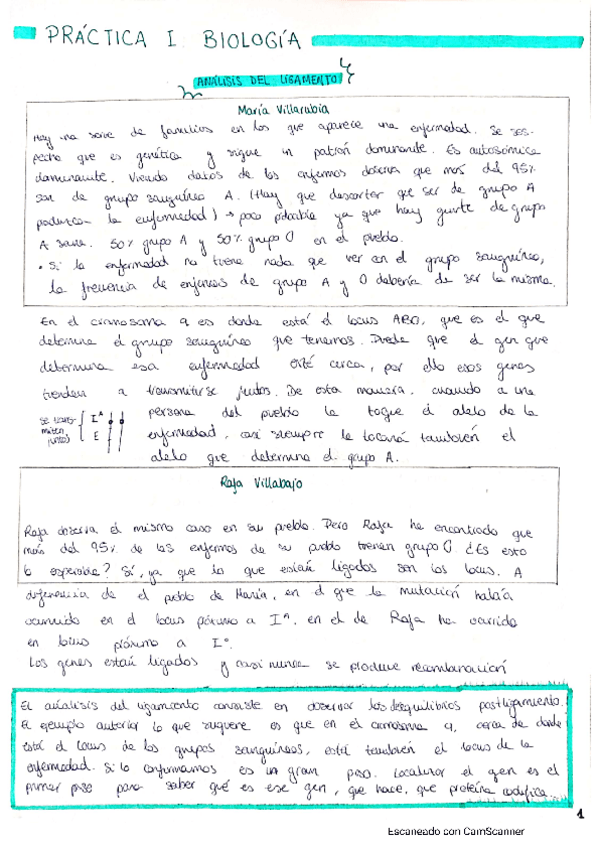 PRÁCTICA I BIOLOGÍA
ANÁLISIS DEL LIGAMENTO
María Villarubia
Hay una serie de familias en los que aparece una enfermedad. Se sos-
pecha que es genética y sigue un patrón dominante. Es autosómica
dominante. Viendo datos de los enfermos observa que más del 95%
son de grupo sanguíneo A. (Hay que descartar que ser de grupo A
produzca la enfermedad) → poco probable ya que hay gente de grupo
A sana. 50% grupo A y 50% grupo O en el pueblo.
• Si la enfermedad no tiene nada que ver con el grupo sanguíneo,
la frecuencia de enfermos de grupo A y O debería de ser la misma.
En el cromosoma 9 es donde está el locus ABO, que es el que
determina el grupo sanguíneo que tenemos. Puede que el gen que
determina esa enfermedad esté cerca, por ello esos genes
tienden a transmitirse juntos. De esta manera, cuando a una
persona del pueblo le toque el alelo de la
enfermedad, casi siempre le tocará también el
alelo que determina el grupo A.
se trans-
miten
juntos
Iᴬ
E
Rafa Villabajo
Rafa observa el mismo caso en su pueblo. Pero Rafa ha encontrado que
más del 95% de los enfermos de su pueblo tienen grupo O. ¿Es esto
lo esperable? Sí, ya que lo que están ligados son los locus. A
diferencia de el pueblo de María, en el que la mutación había
ocurrido en el locus próximo a Iᴬ, en el de Rafa ha ocurrido
en locus próximo a I°.
Los genes están ligados y casi nunca se produce recombinación
El análisis del ligamiento consiste en observar los desequilibrios postligamiento.
El ejemplo anterior lo que sugiere es que en el cromosoma 9, cerca de donde
está el locus de los grupos sanguíneos, está también el locus de la
enfermedad. Si lo confirmamos es un gran paso. Localizar el gen es el
primer paso para saber qué es ese gen, que hace, que proteína codifica...
1
Escaneado con CamScanner